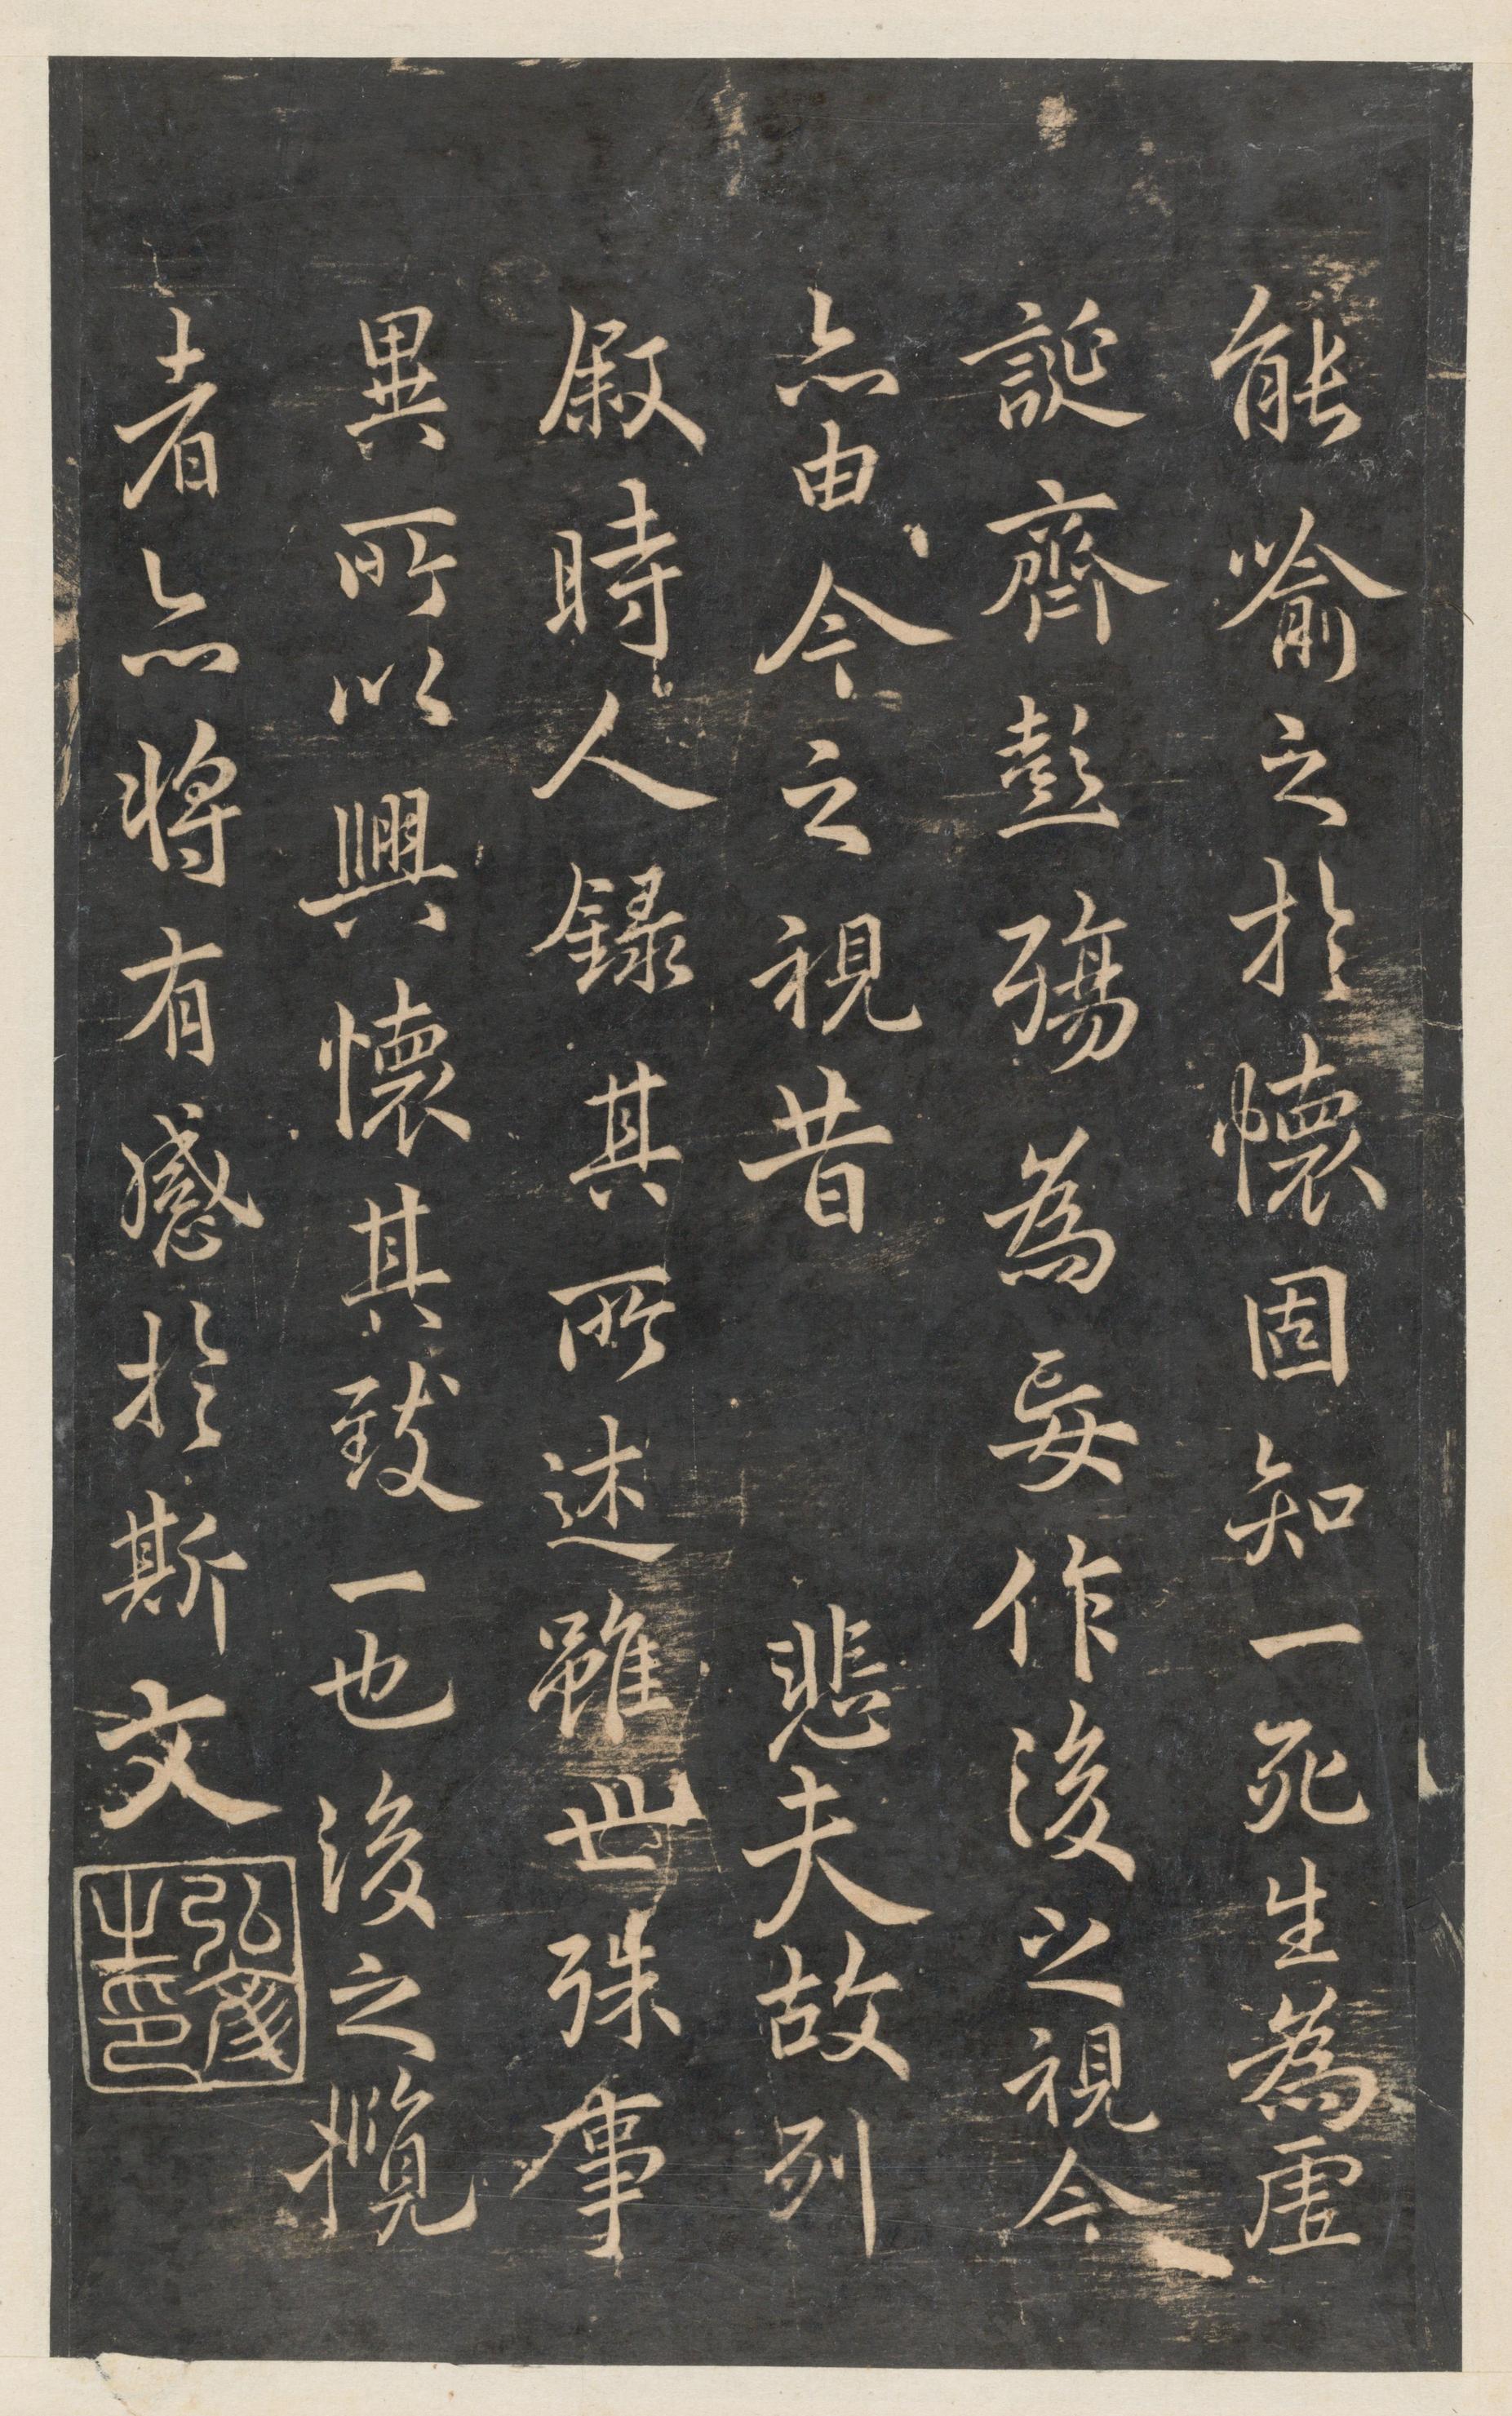 能喻之於懷固知一死生為虛
誕齊彭殤為妄作後之視今
亦由今之視昔 悲夫故列
敘時人錄其所述雖世殊事
異所以興懷其致一也後之攬
者亦將有感於斯文